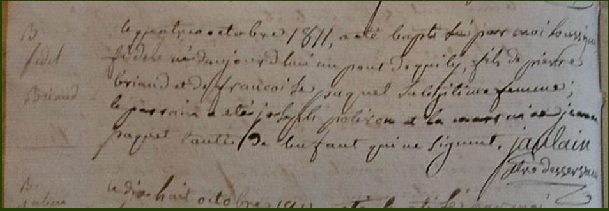 B
fidel
Briand
le quatre octobre 1811, a été baptisé par moi soussigné
fidele né d'aujourd'hui au pont de, fils de pierre
briand et de francoise paquet sa légitime femme;
le parrain a été joseph et la marraine jeanne
paquet tante de l'enfant qui ne signent. jaulain
B
le dix huit octobre 1811